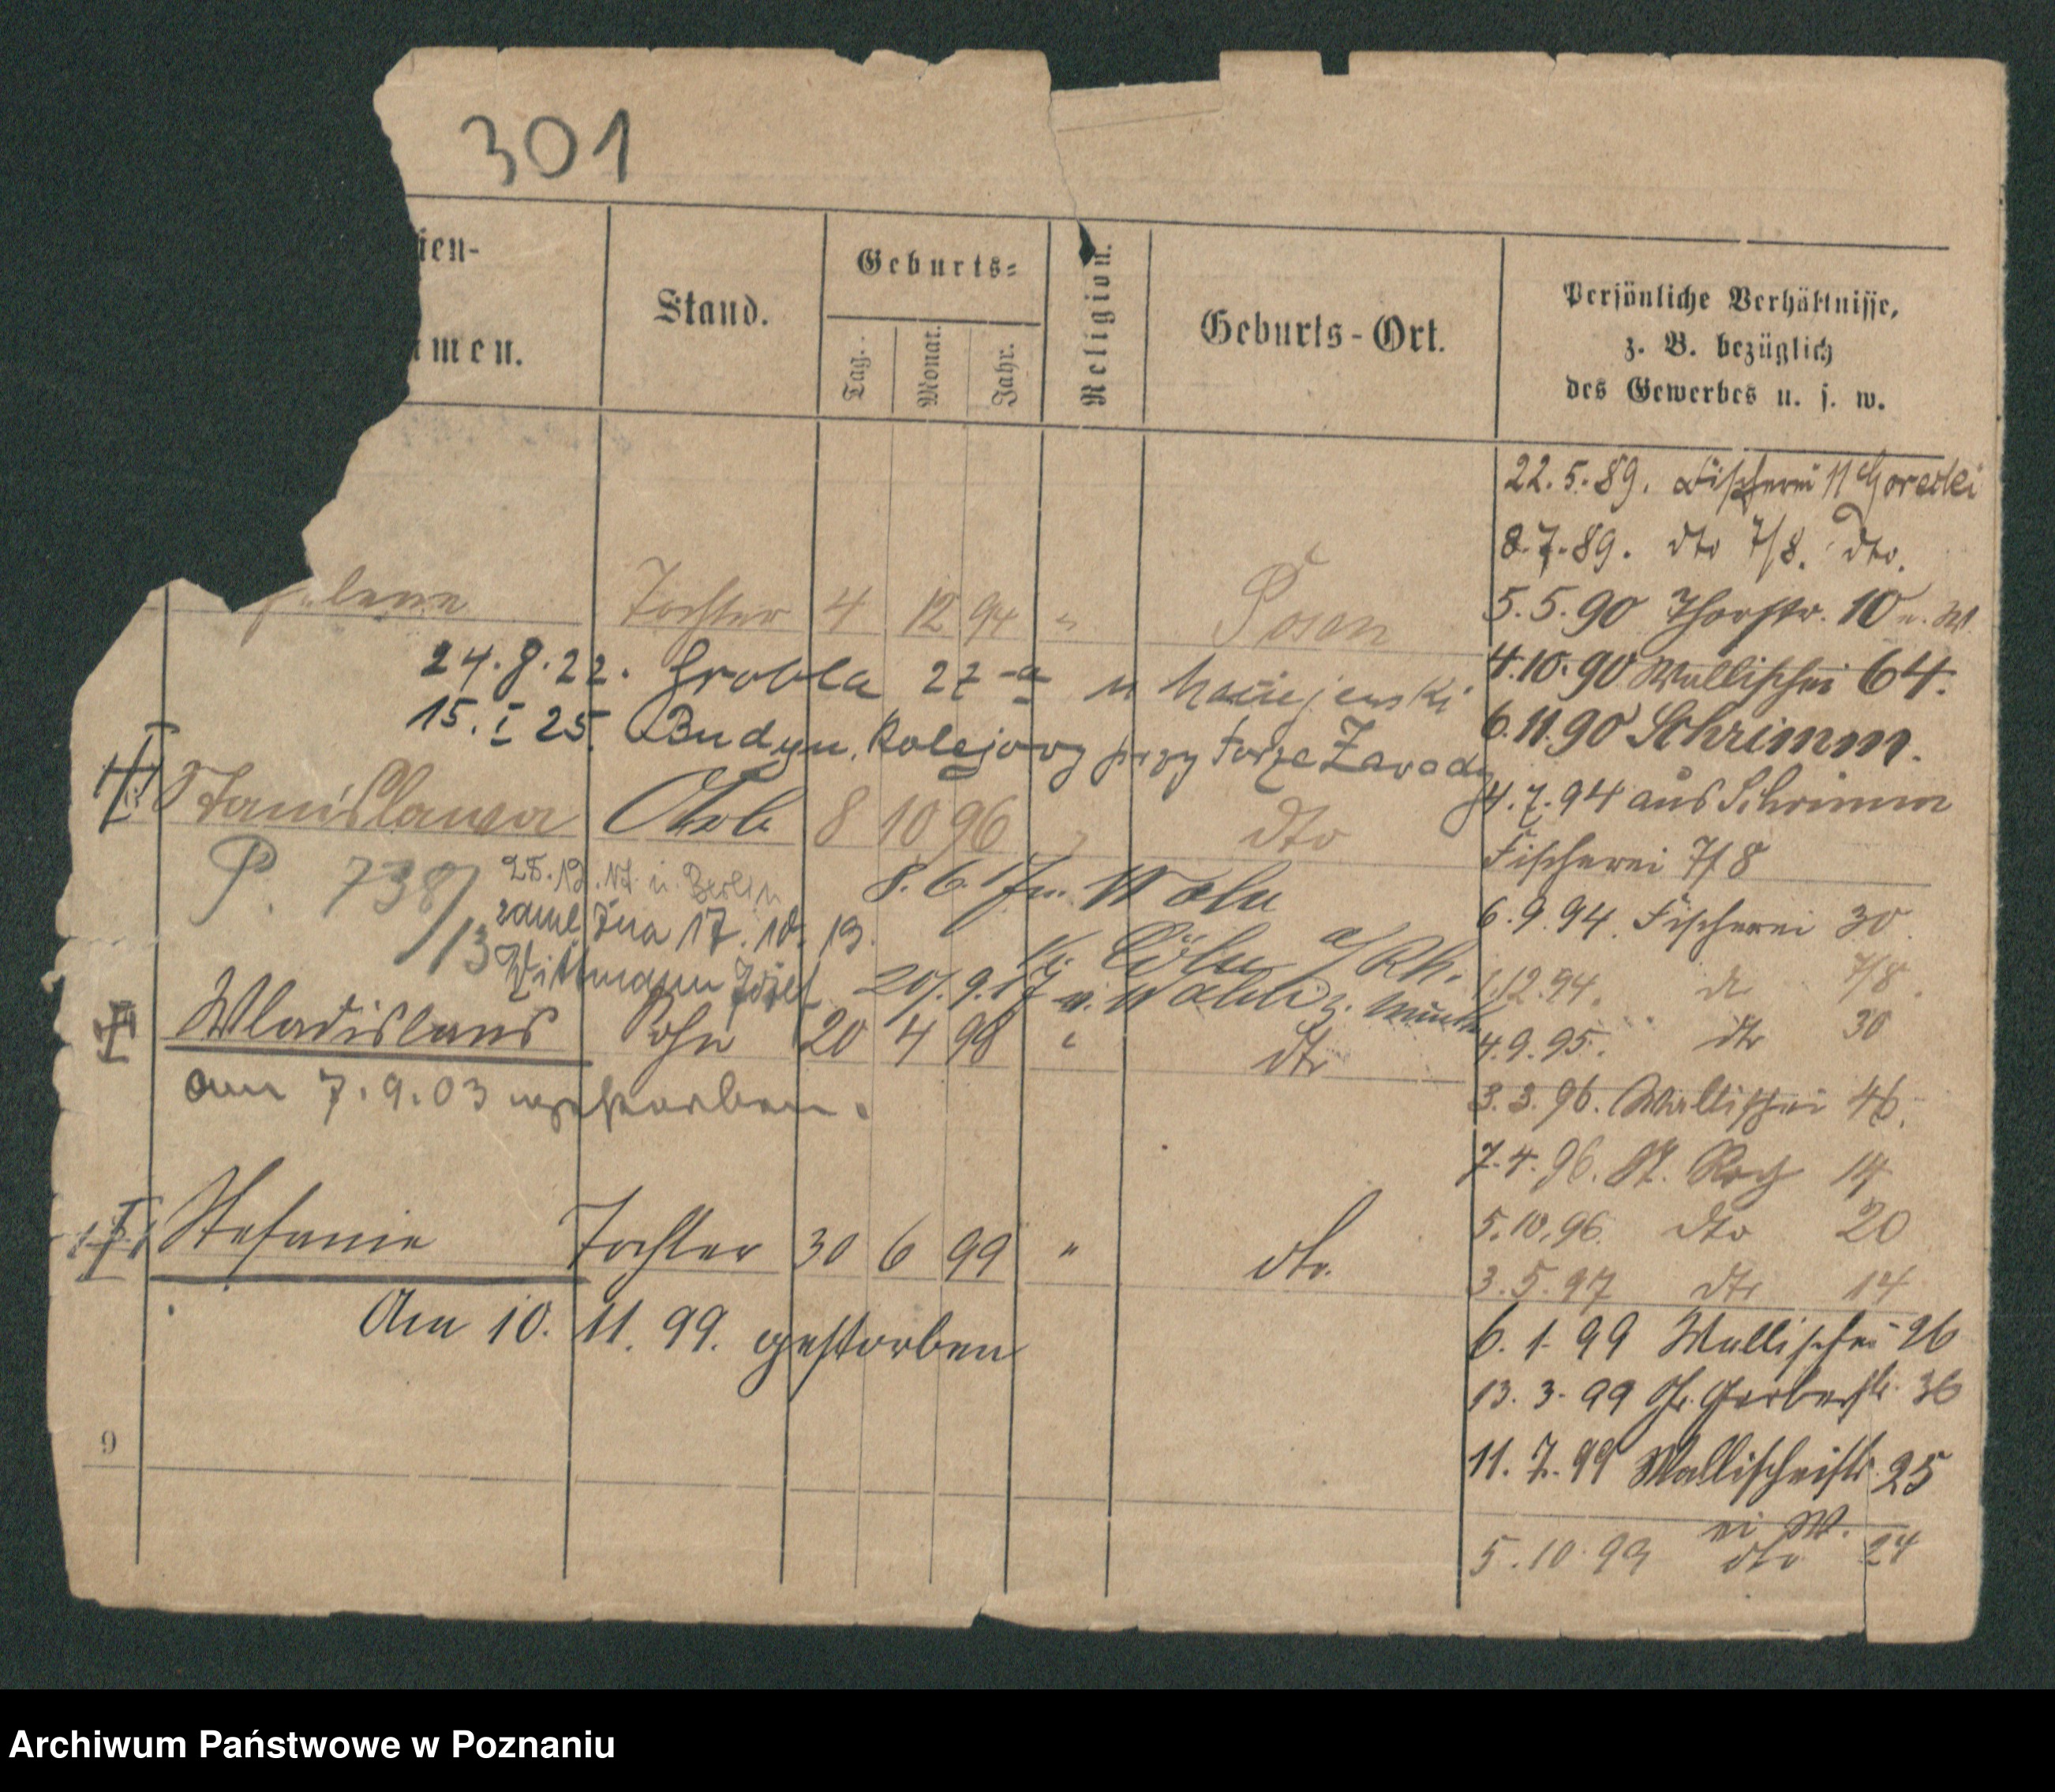 301
ien-
men.
Stand.
Geburts-
Tag.
Monat.
Jahr.
Religion.
Geburts-Ort.
Persönliche Verhältnisse,
z. B. bezüglich
des Gewerbes u. s. w.
22.5.89. Fischerei 11
8.7.89. dto 7/8. dto.
lene Tochter 4 12 94 " Posen
5.5.90 Thorstr. 10
24.8.22. Grobla 27-a u Maciejewski
4.10.90 Wallischei 64.
15.I 25. Budyn. Kolejowy przy torze Zawady
6.11.90 Schrimm.
4.7.94 aus Schrimm
Stanislawa 8 10 96 " dto
Fischerei 7/8
P. 738/13
i. Berlin
8.6.17
6.9.94. Fischerei 30
zamężna 17. 10. 13.
Wittmann Józef
Cöln a/Rh.
20.9.17
1.12.94. 7/8.
Wladislaus Sohn 20 4 98 " dto
4.9.95. dto 30
am 7.9.03 verstorben.
3.3.96. Wallischei 46.
7.4.96. St. Roch 14
5.10.96. dto 20
Stefanie Tochter 30 6 99 " dto.
3.5.97 dto 14
Am 10. 11. 99. gestorben
6.1.99 Wallischei 26
13.3.99 Gr. Gerberstr. 36
9
11.7.99 Wallischeistr. 25
5.10.99 dto 24
Archiwum Państwowe w Poznaniu